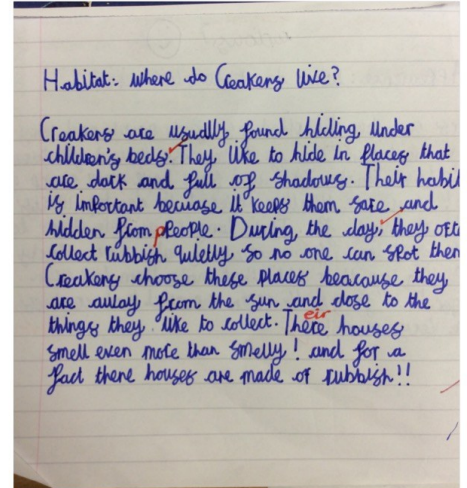 Habitat: where do Creakers live?
Creakers are usually found hiding under
children's beds. They like to hide in places that
are dark and full of shadows. Their habi
is important becuase it keeps them safe and
hidden from people. During the day, they ofte
collect rubbish quietly so no one can spot them
Creakers choose these places beacause they
are away from the sun and close to the
eir
things they like to collect. There houses
smell even more than smelly! and for a
fact there houses are made of rubbish!!